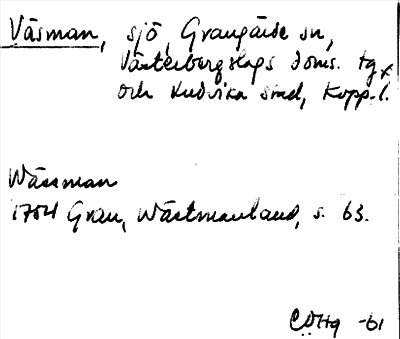 Väsman, sjö, Grangärde sn,
Västerbergslags doms. tg
och Ludvika stad, Kopp. l.
Wässman
1754 Gran, Wästmanland, s. 63.
CDHg -61